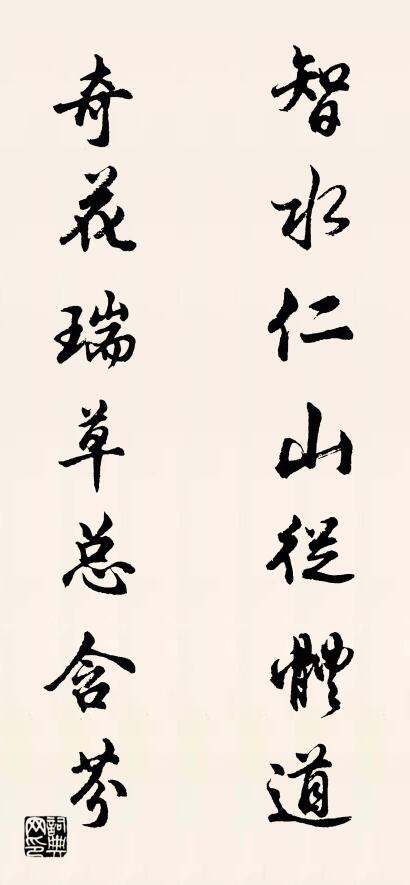 智水仁山從體道
奇花瑞草总含芬
詞典网印